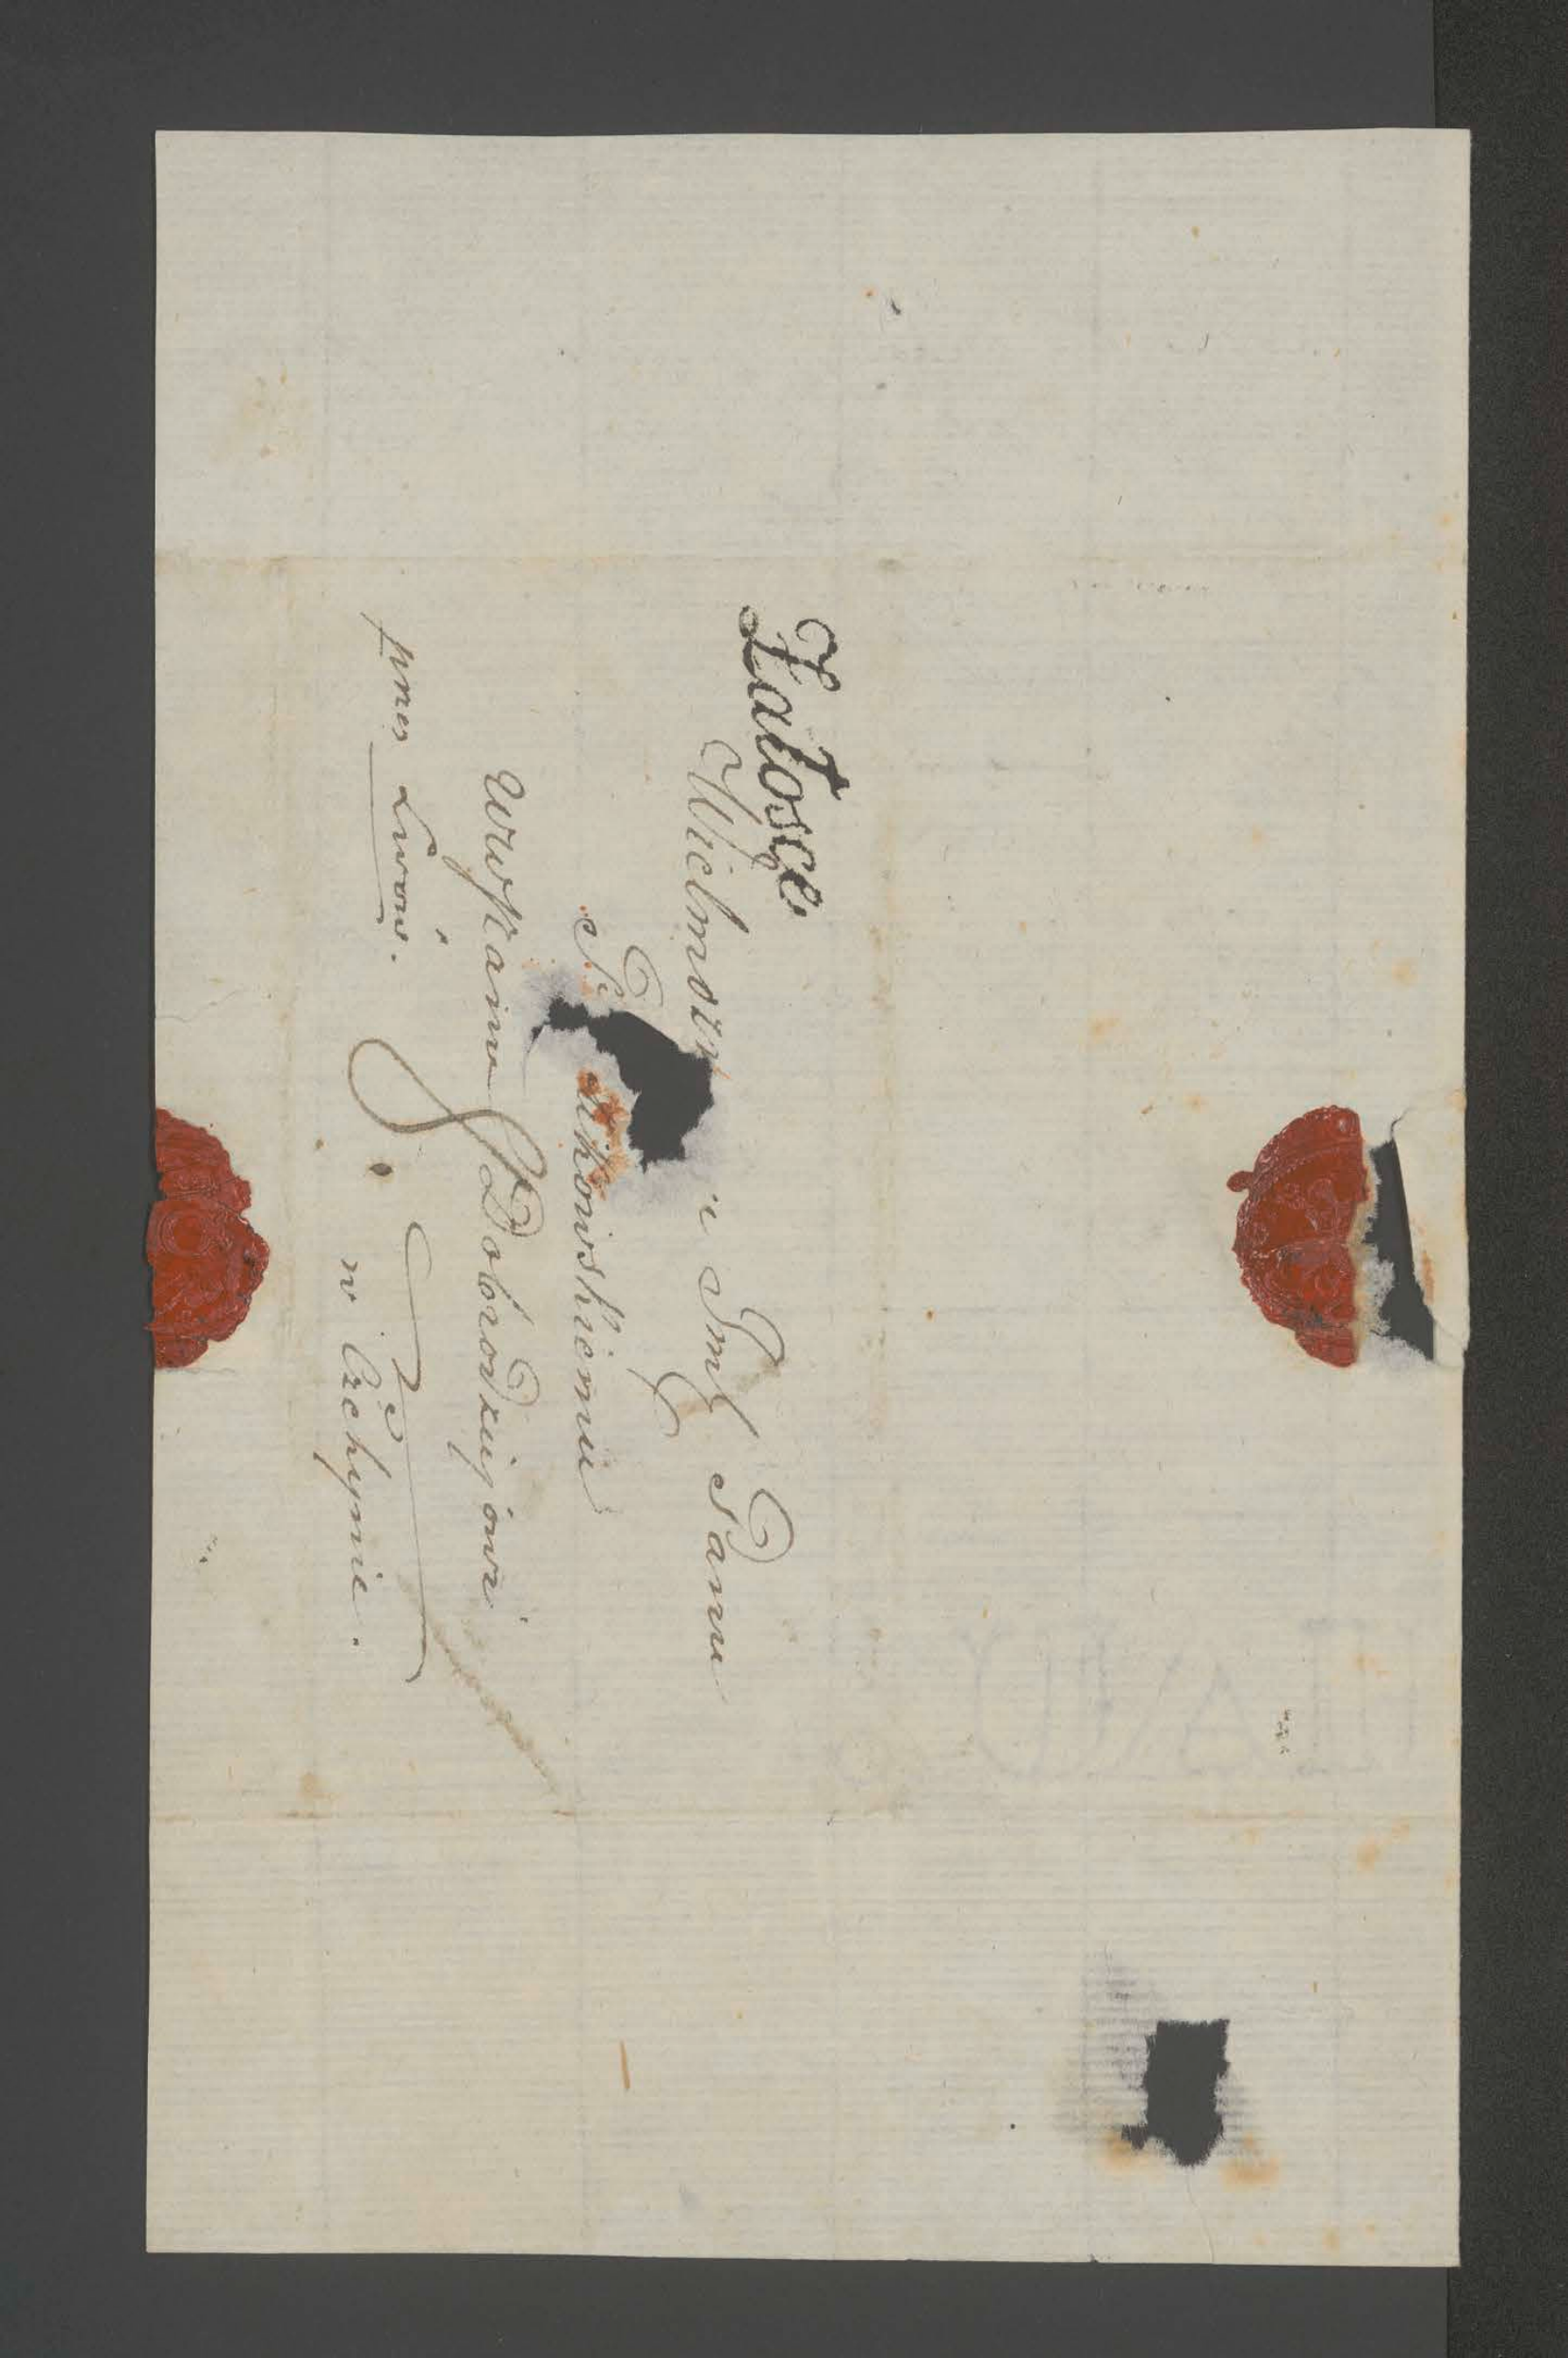 Załosce
Wielmożn u Jmć Panu
P nkowskiemu
WWPanu Dobrodziejowi
przez Lwów.
w Cichynie.